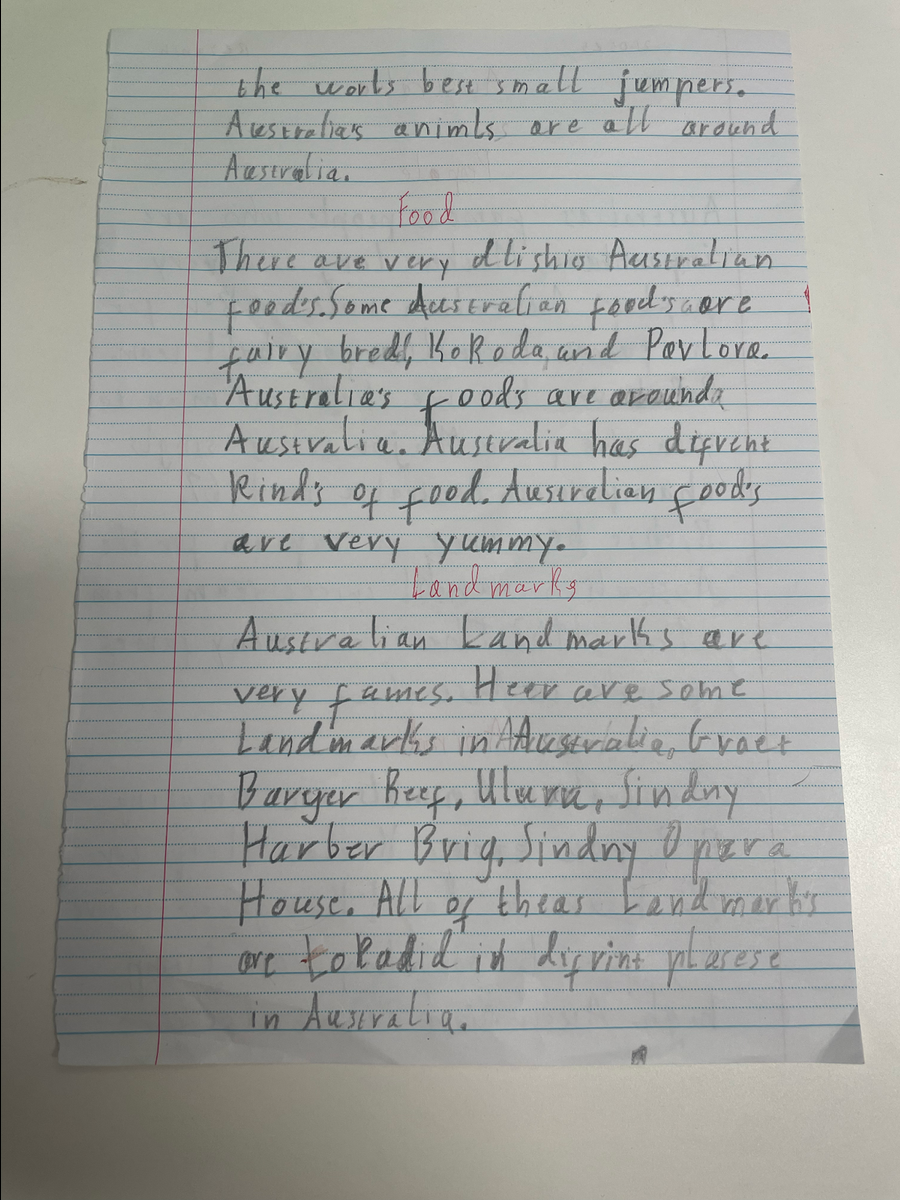 the worls best small jumpers.
Australia's animls are all around
Australia.
Food
There are very dlishios Australian
food's. Some Australian food's are
fairy bred, KoKoda, and Pavlova.
Australia's foods are around
Australia. Australia has difrent
kind's of food. Australian food's
are very yummy.
Landmarks
Australian Landmarks are
very fames. Heer are some
Landmarks in Australia, Graet
Baryer Reef, Uluru, Sindny
Harber Brig, Sindny Opera
House. All of theas Landmark's
are in difrint plasese
in Australia.